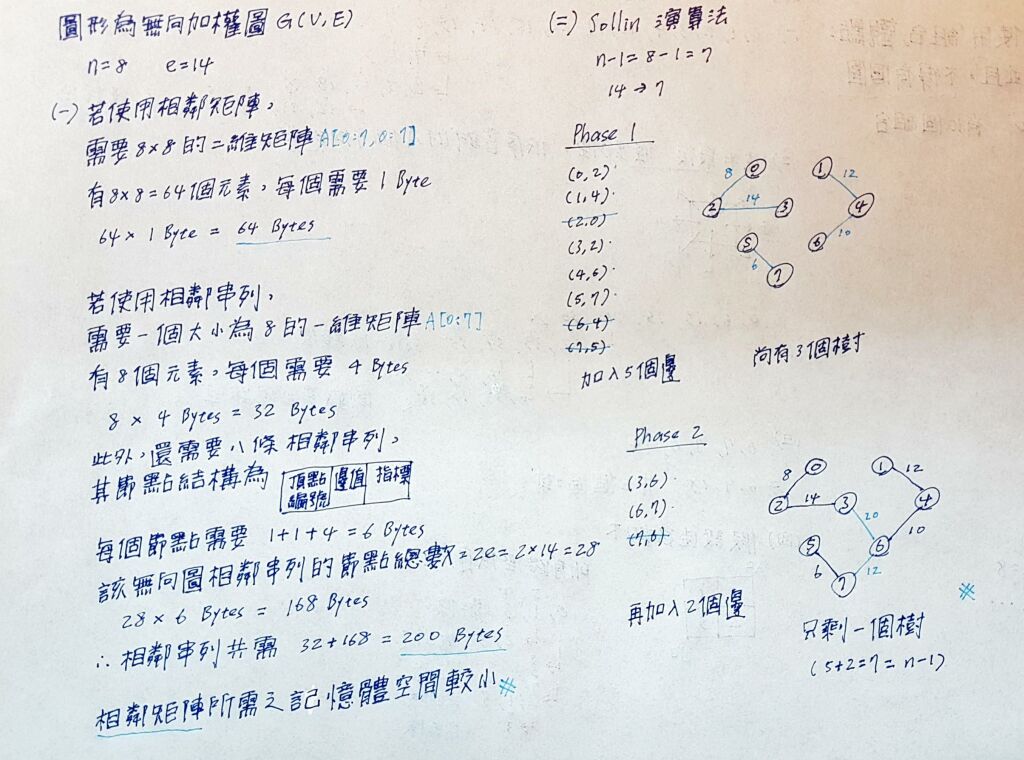 圖形為無向加權圖 G(V,E)
n=8 e=14
(一) 若使用相鄰矩陣,
需要 8×8 的二維矩陣 A[0:7,0:7]
有 8×8=64 個元素,每個需要 1 Byte
64 × 1 Byte = 64 Bytes
若使用相鄰串列,
需要一個大小為 8 的一維矩陣 A[0:7]
有 8 個元素,每個需要 4 Bytes
8 × 4 Bytes = 32 Bytes
此外,還需要八條相鄰串列,
其節點結構為 頂點編號 邊值 指標
每個節點需要 1+1+4 = 6 Bytes
該無向圖相鄰串列的節點總數=2e=2×14=28
28 × 6 Bytes = 168 Bytes
∴ 相鄰串列共需 32+168 = 200 Bytes
相鄰矩陣所需之記憶體空間較小 #
(二) Sollin 演算法
n-1=8-1=7
14 → 7
Phase 1
(0,2)
(1,4)
(2,0)
(3,2)
(4,6)
(5,7)
(6,4)
(7,5)
加入5個邊
0 1
8 12
2 14 3 4
5 6 10
6
7
尚有3個樹
Phase 2
(3,6)
(6,7)
(7,6)
再加入2個邊
0 1 12
8
2 14 3 4
20 10
5 6
6 12
7
#
只剩一個樹
(5+2=7=n-1)